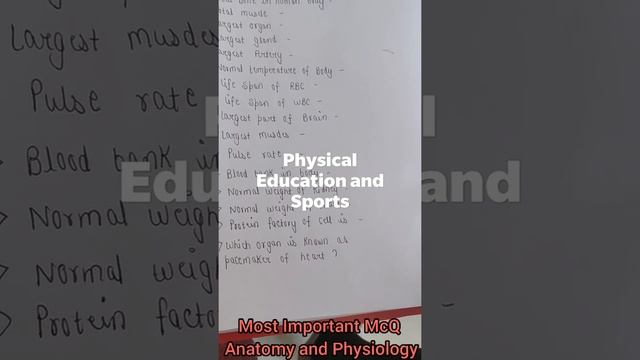 muscle -
largest organ -
largest gland -
largest Artery -
Normal temperature of Body -
life span of RBC -
life span of WBC -
largest part of Brain -
Largest muscles -
Pulse rate
Blood bank in body -
Normal weight of kidney -
Normal weight
Protein factory of cell is -
Which organ is known as
pacemaker of heart ?
Physical
Education and
Sports
Most Important McQ
Anatomy and Physiology
Largest muscles
Pulse rate
Blood bank in
Normal weigh
Normal weigh
Protein facto
Edu
and